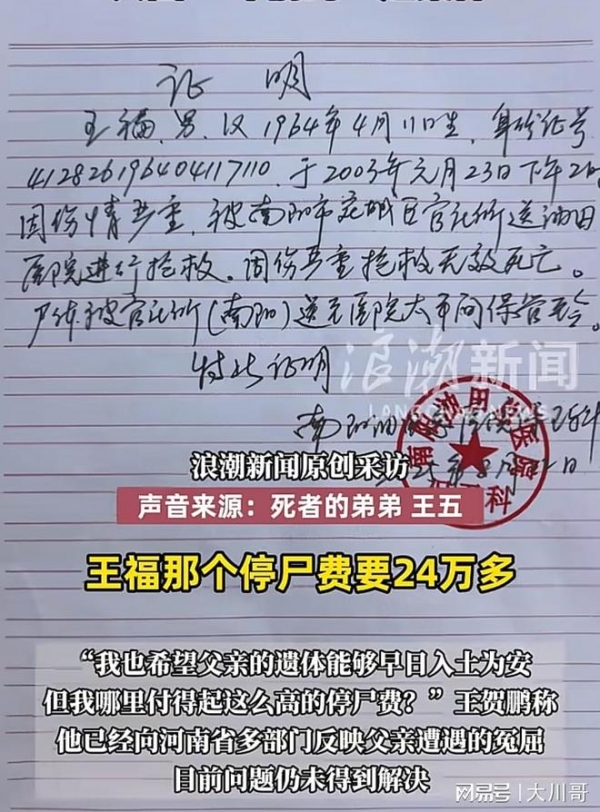 证 明
王福，男，汉 1964年4月11日生，身份证号
412826196404117110，于2003年元月23日下午2时
因伤情严重，被南阳市宛城区官庄所送油田
医院进行抢救。因伤严重抢救无效死亡。
尸体被官庄所(南阳)送至医院太平间保管至今。
特此证明
浪潮新闻
南阳油田
浪潮新闻原创采访
声音来源：死者的弟弟 王五
王福那个停尸费要24万多
“我也希望父亲的遗体能够早日入土为安
但我哪里付得起这么高的停尸费？”王贺鹏称
他已经向河南省多部门反映父亲遭遇的冤屈
目前问题仍未得到解决
网易号 | 大川哥